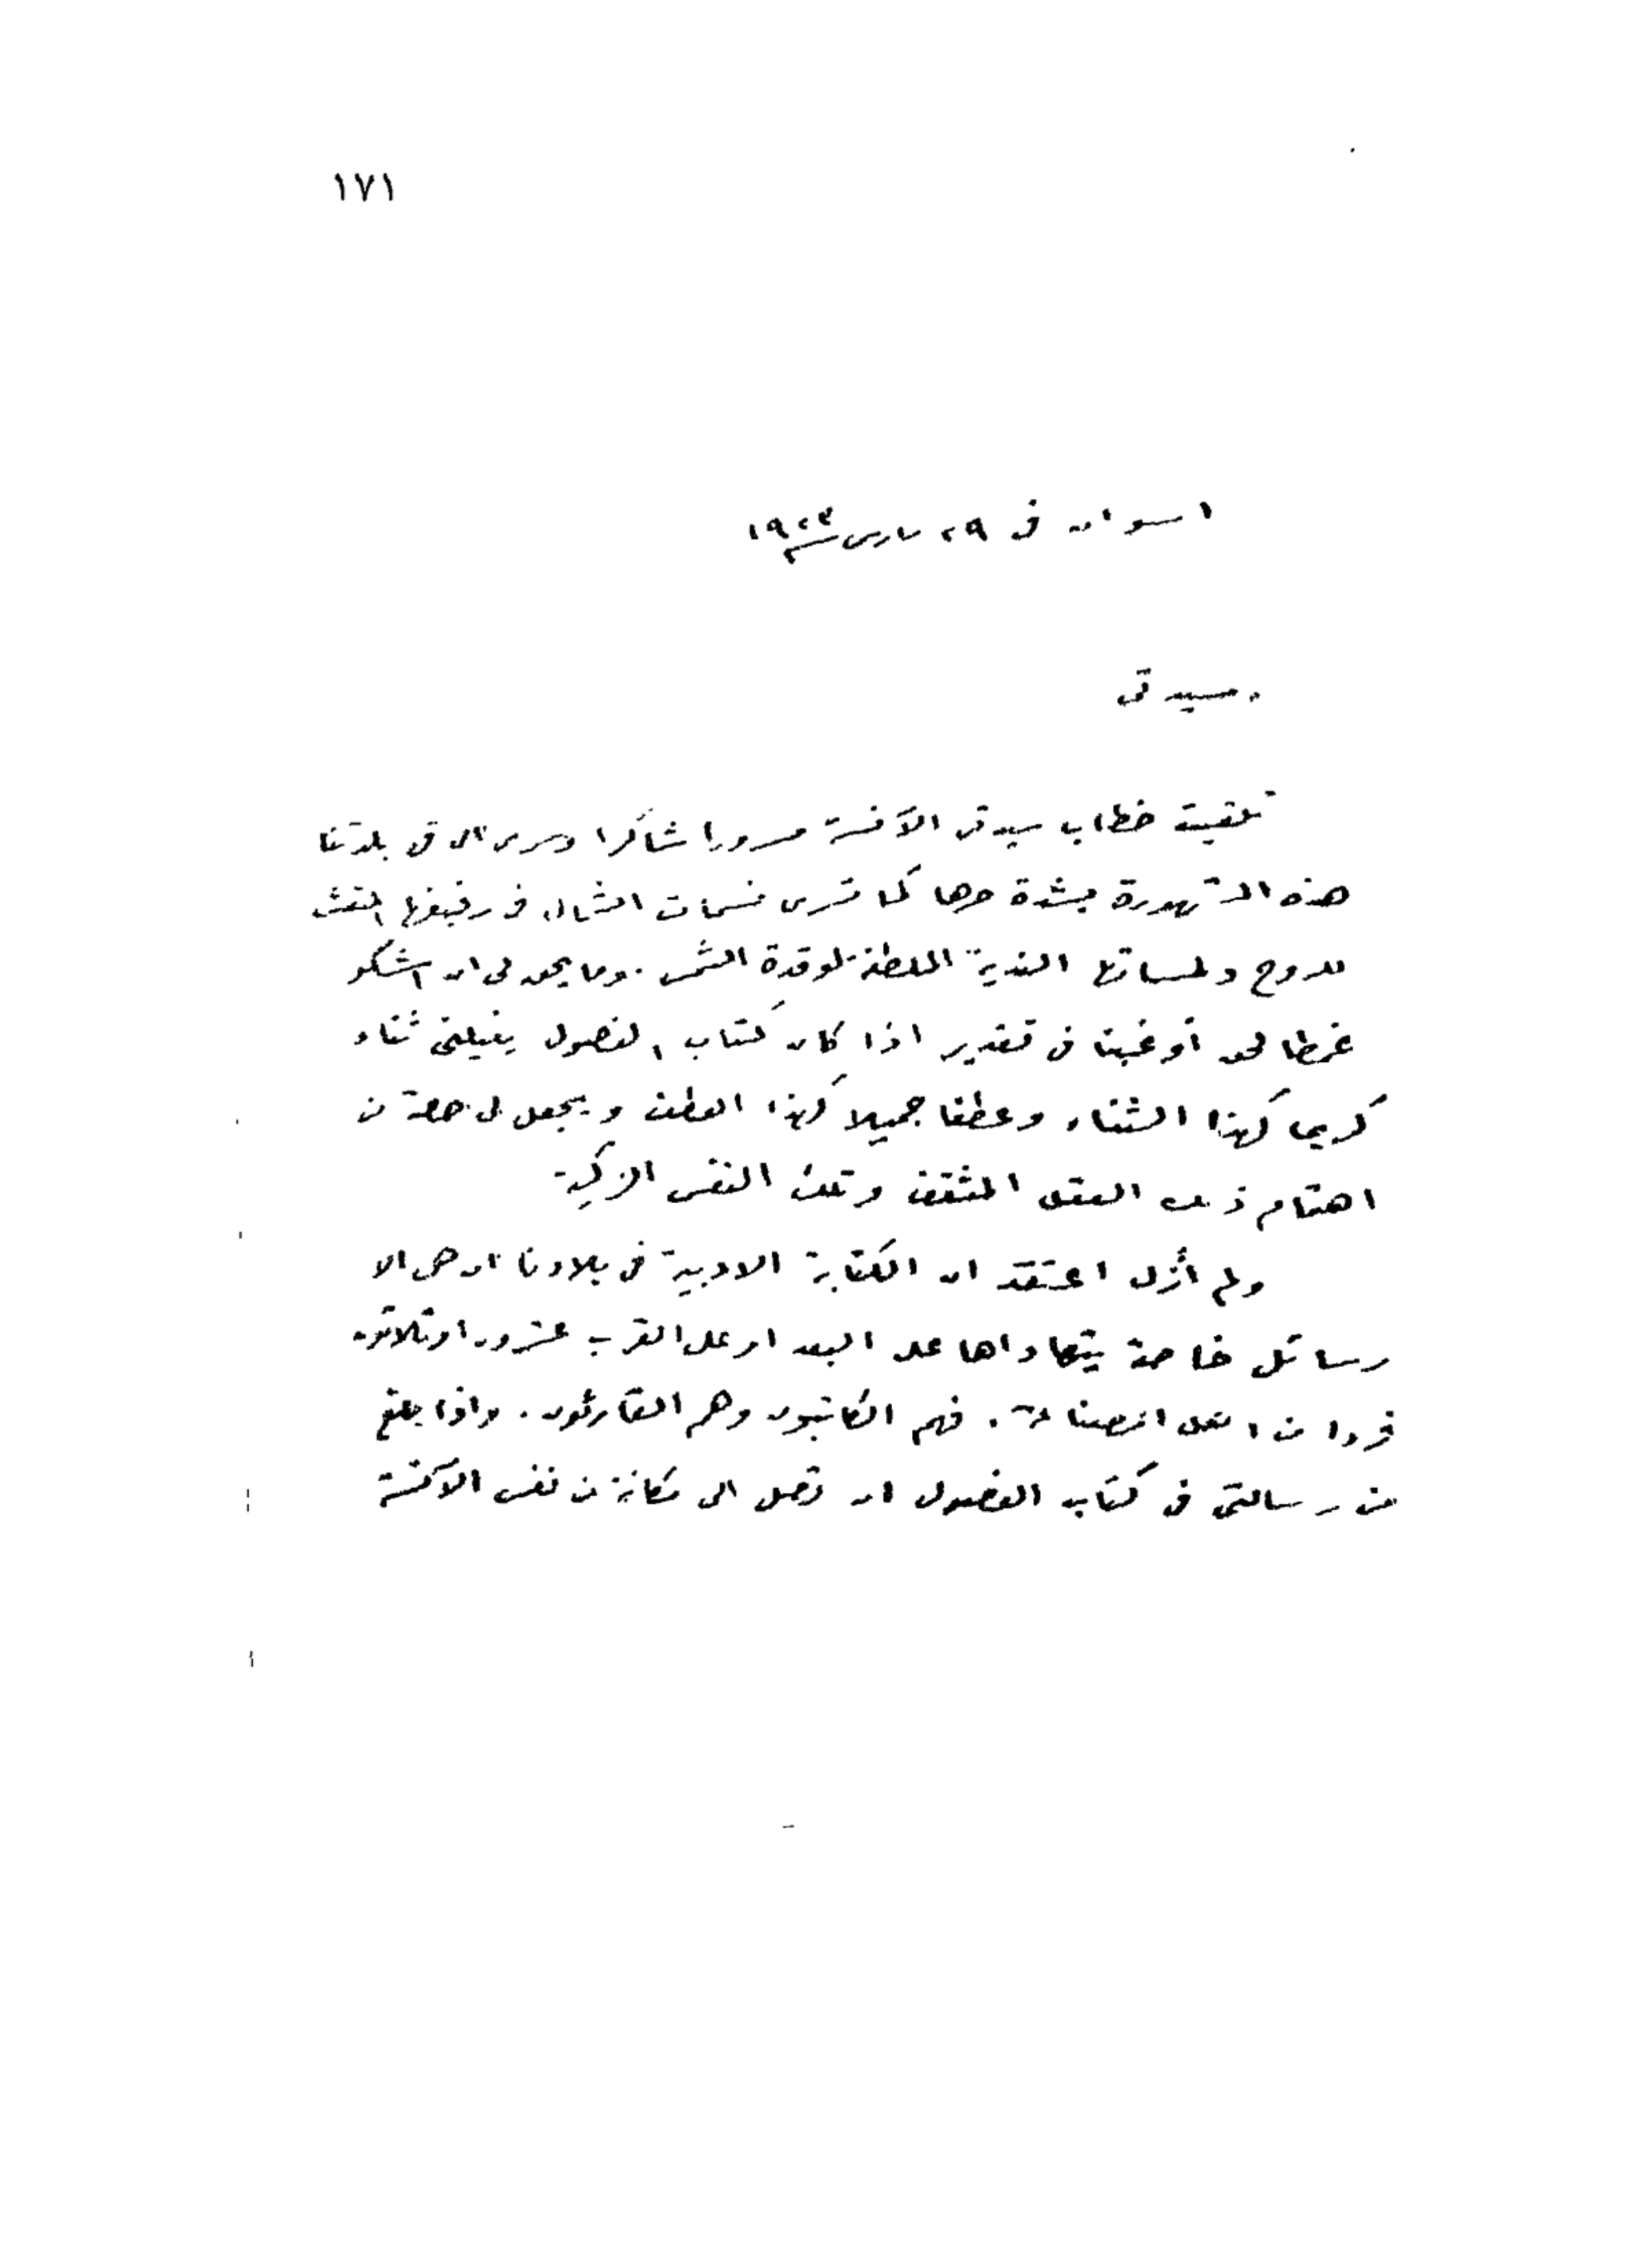 ١٧١
اسوان في ٢٩ مارس سنة ١٩٢٣
سيدتي
تلقيت خطاب سيدتي الآنسة مسرورا شاكرا وسرى الى في بلدتنا
هذه المشهورة بشدة حرها كما تسرى نسمات الشمال في رفيفها المنعش
للروح ولمساتها الندية الملطفة لوقدة الشمس . وما يحق لى ان اشكو
غمطا لحق أو غبنا في تقدير اذا كان كتاب الفصول ينيلنى ثناء
كريما كهذا الثناء وعطفا جميلا كهذا العطف ويجعل لى حصة من
اهتمام ذلك العقل المثقف وتلك النفس الزكية
ولم أزل اعتقد ان الكتابة الادبية في بلادنا ان هى الا
رسائل خاصة يتهاداها على البعد او على القرب عشرون او ثلاثون
فردا من اهل الصناعة . فهم الكاتبون وهم القارئون . واذا بلغ
من رسالتى في كتاب الفصول ان تصل الى مكانة من نفس الآنسة